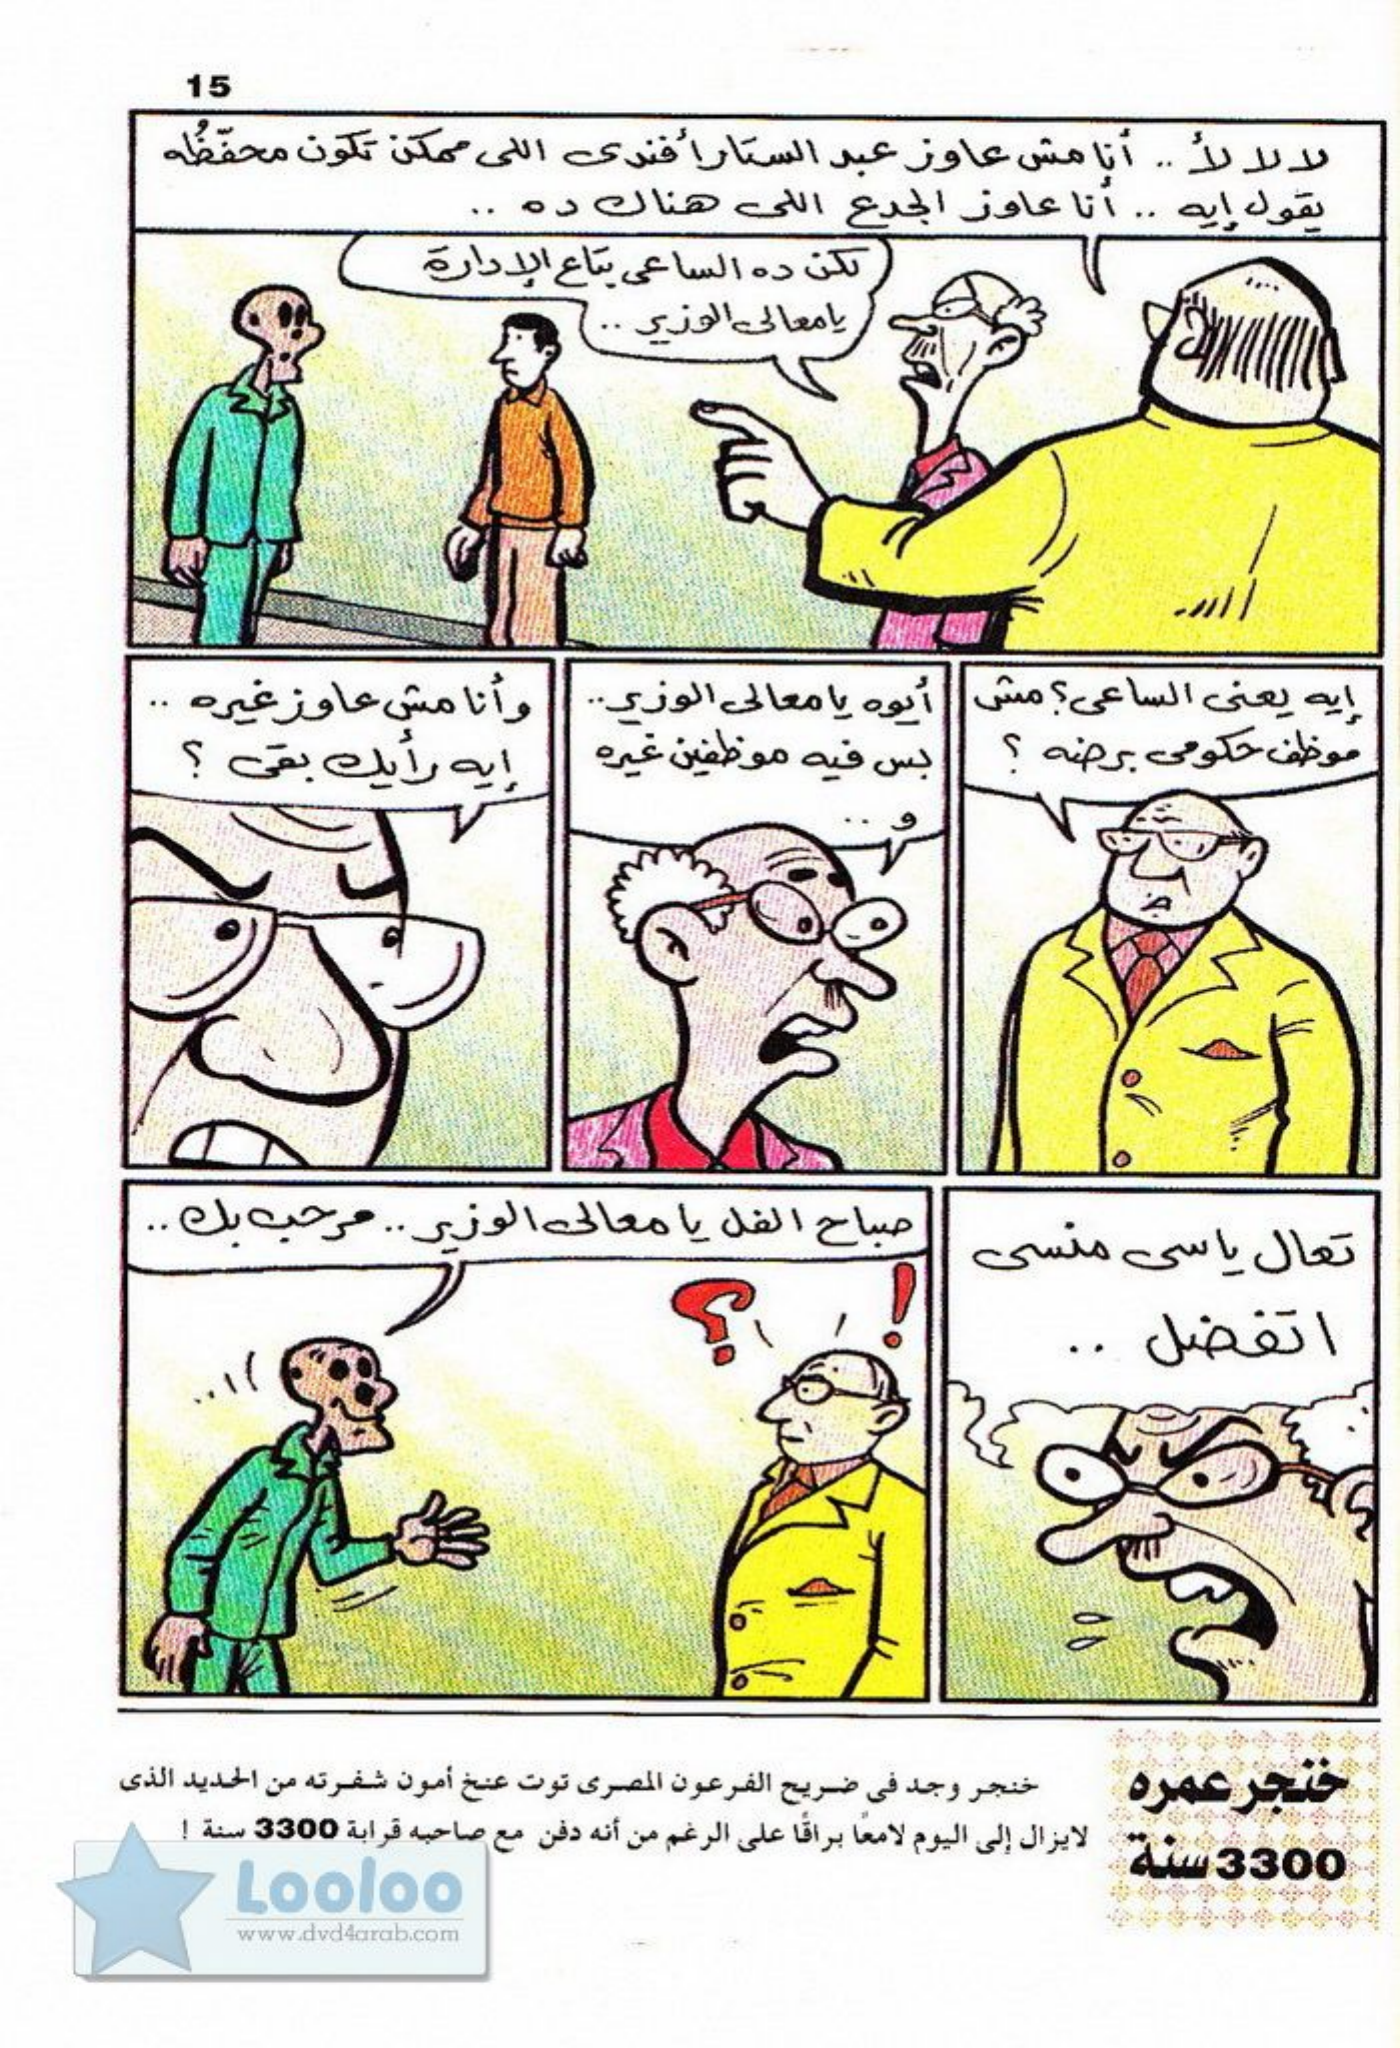 15
لا لا لأ .. أنا مش عاوز عبد الستار أفندى اللى ممكن تكون محفّظُه
يقول إيه .. أنا عاوز الجدع اللى هناك ده ..
لكن ده الساعى بتاع الإدارة
يا معالى الوزير ..
إيه يعنى الساعى؟ مش
موظف حكومى برضه ؟
أيوه يا معالى الوزير ..
بس فيه موظفين غيره
و ..
وأنا مش عاوز غيره ..
إيه رأيك بقى ؟
تعال يا سى منسى
اتفضل ..
صباح الفل يا معالى الوزير .. مرحب بك ..
خنجر عمره
3300 سنة
خنجر وجد فى ضريح الفرعون المصرى توت عنخ أمون شفرته من الحديد الذى
لايزال إلى اليوم لامعًا براقًا على الرغم من أنه دفن مع صاحبه قرابة 3300 سنة !
Looloo
www.dvd4arab.com